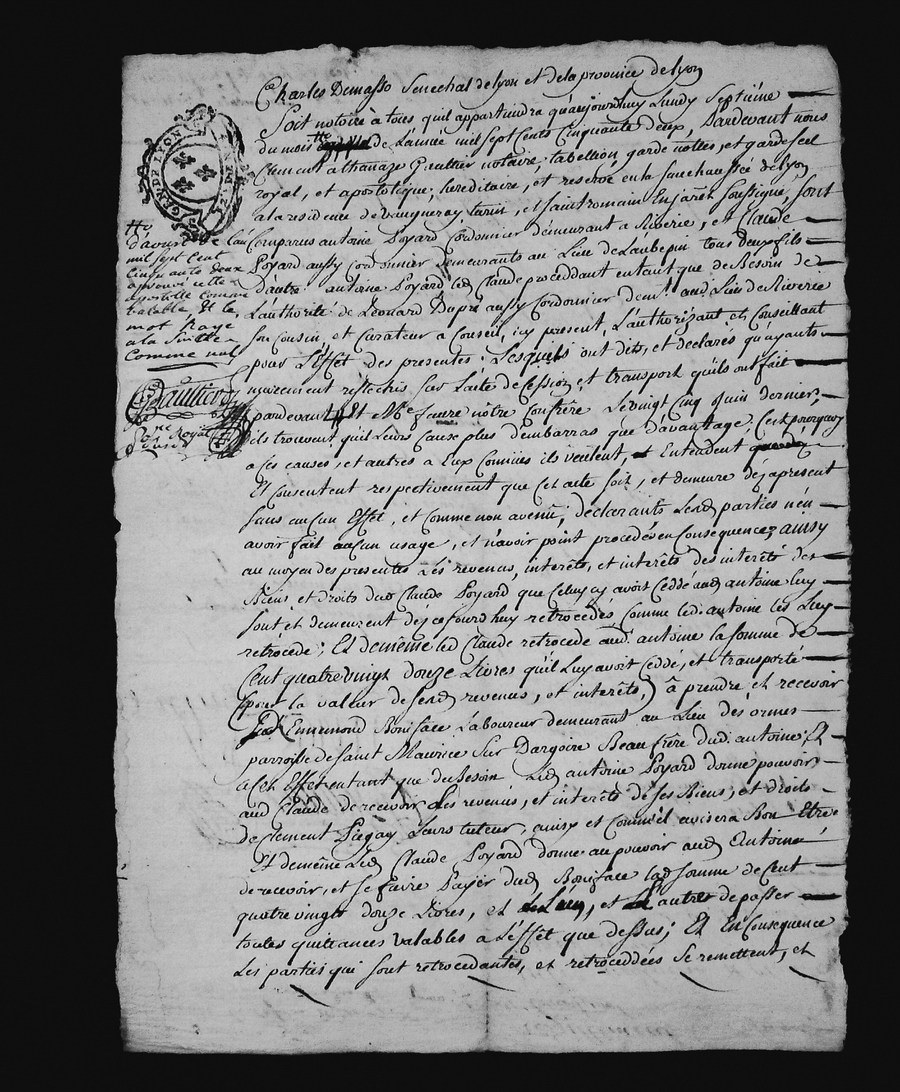 Charles Demasso Senechal de lyon et de la province de lyon
Soit notoire à tous quil appartiendra qu'aujourdhuy Lundy Septiéme
du mois de L'année mil sept Cents Cinquante deux, Pardevant nous
Clement athanaze Gaultier notaire, tabellion, garde nottes, et garde scel
royal, et apostolique, hereditaire, et reservé en la Senechaussée de Lyon
a la residence de vaugneray turin, et saint romain En jarêt soussigné, sont
Comparus antoine Poyard Cordonnier demeurant a Riverie, et Claude
Poyard aussy Cordonnier demeurants au Lieu de Laubepin tous deux fils
d'autre antoine Poyard led. Claude procédant entant que de Besoin de
L'authorité de Leonard Dupré aussy Cordonnier demt. aud. Lieu de Riverie
son Cousin, et Curateur a Conseil, icy present, L'authorizant et Conseillant
pour L'effet des presentes; Lesquels ont dits, et declarés qu'ayants
murement refléchis sur L'acte de Cession, et transport qu'ils ont fait
pardevant Et Me faure nôtre Confrère Le vingt Cinq Juin dernier,
ils trouvent qu'il Leurs Cause plus dembarras que davantage; C'est pourquoy
a Ces causes, et autres a Eux Connües ils veulent, Entendent
Et Consentent respectivement que Cet acte soit, et demeure déjapresent
sans aucun Effet, et Comme non avenû, declarants Lesd. parties n'en
avoir fait aucun usage, et n'avoir point procédés en Consequence; ainsy
au moyen des presentes Les revenus, interêts, et interêts des interêts des
Biens et droits dud. Claude Poyard que Celuy cy avoit Ceddé aud. antoine Luy
sont et demeurent déjcejourdhuy retrocedés Comme led. antoine les Luy
retrocede; Et demême led. Claude retrocede aud. antoine la somme de
Cent quatre vingt douze Livres qu'il Luy avoit Ceddé, et transporté
(pour la valeur desesd. revenus, et interêts,) à prendre et recevoir
Ennemond Boniface Laboureur demeurant au Lieu des ormes
parroisse de Saint Maurice Sur Dargoire Beau frère dud. antoine; Et
a Cet Effet entant que de Besoin Led. antoine Poyard donne pouvoir
aud. Claude de recevoir Les revenus, et interêts de ses Biens, et droits
de Clement Pugay Leurs tuteur, ainsy et Comm'il avisera Bon Etre
Et demême Led. Claude Poyard donne au pouvoir aud. Antoine
de recevoir, et se faire Payër dud. Boniface lad. somme de Cent
quatre vingt douze Livres, et, et autres de passer
toutes quittances valables a L'effet que dessus; Et En Consequence
Les parties qui sont retrocedantes, et retroceddées se remettent, et
GNDE LYON
d'avoust de lan
mil sept cent
cinquante deux
approuvé cette
apostille comme
valable, et le
mot Rayé
a la suitte
comme nul
Gaultier
Royal